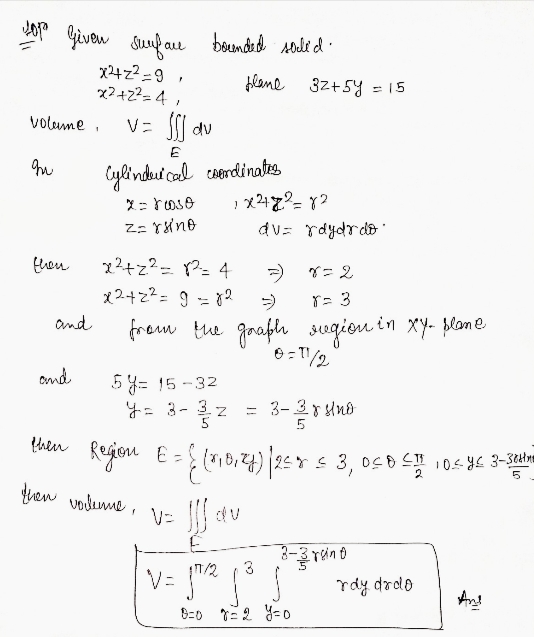 Solⁿ Given surface bounded solid.
x²+z²=9 ,
x²+z²=4 , plane 3z+5y = 15
volume, V= ∭ dv
E
In cylinderical coordinates
x= rcosθ , x²+z²= r²
z= rsinθ dv= rdydrdθ.
then x²+z²= r²= 4 => r=2
x²+z²= 9 = r² => r=3
and from the graph region in xy-plane
θ=π/2
and 5y= 15-3z
y= 3- 3/5 z = 3- 3/5 r sinθ
then Region E = { (r,θ,y) | 2≤r≤3, 0≤θ≤π/2, 0≤y≤ 3-3rsinθ/5
then volume, V= ∭ dv
E
V= ∫_{θ=0}^{π/2} ∫_{r=2}^{3} ∫_{y=0}^{3-3/5 rsinθ} rdy drdθ Ans